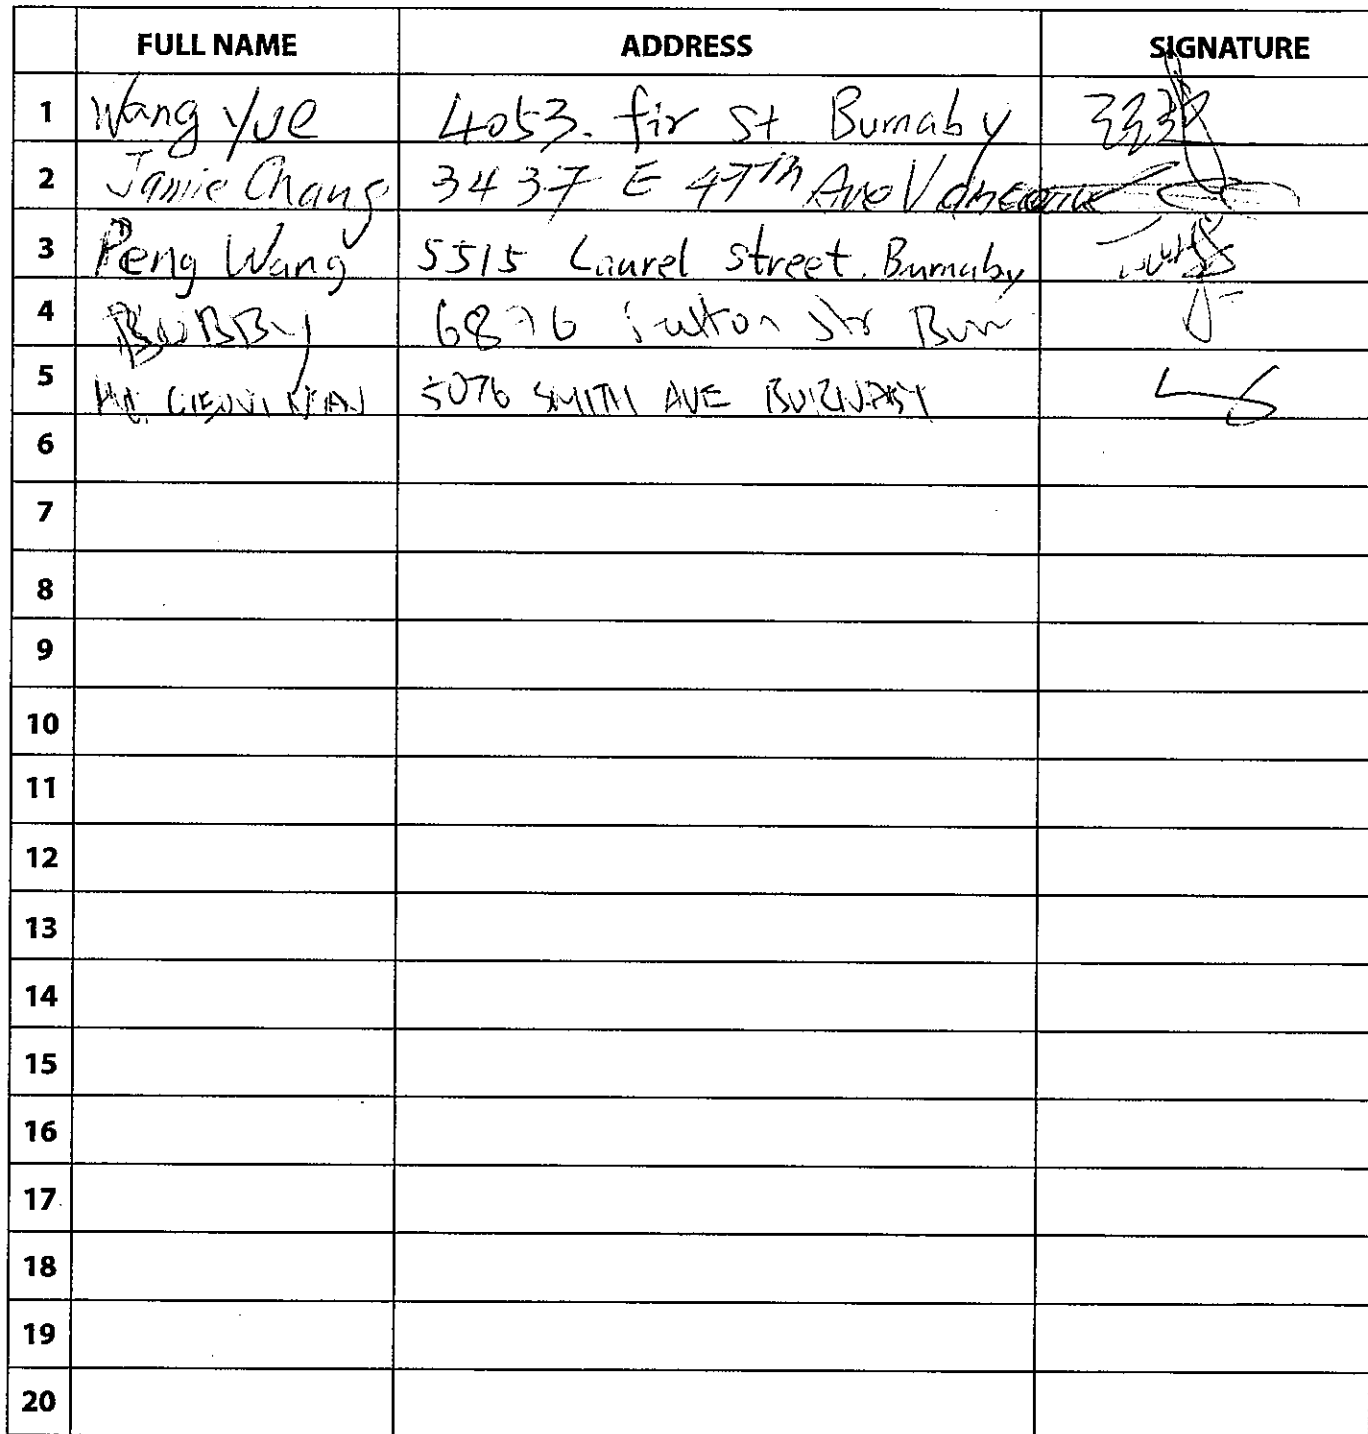 FULL NAME ADDRESS SIGNATURE
1 Wang Yue 4053. fir St Burnaby
2 Jamie Chang 3437 E 47th Ave Vancouver
3 Peng Wang 5515 Laurel street. Burnaby
4 BOBBY Bur
5 5076 SMITH AVE BURNABY
6
7
8
9
10
11
12
13
14
15
16
17
18
19
20